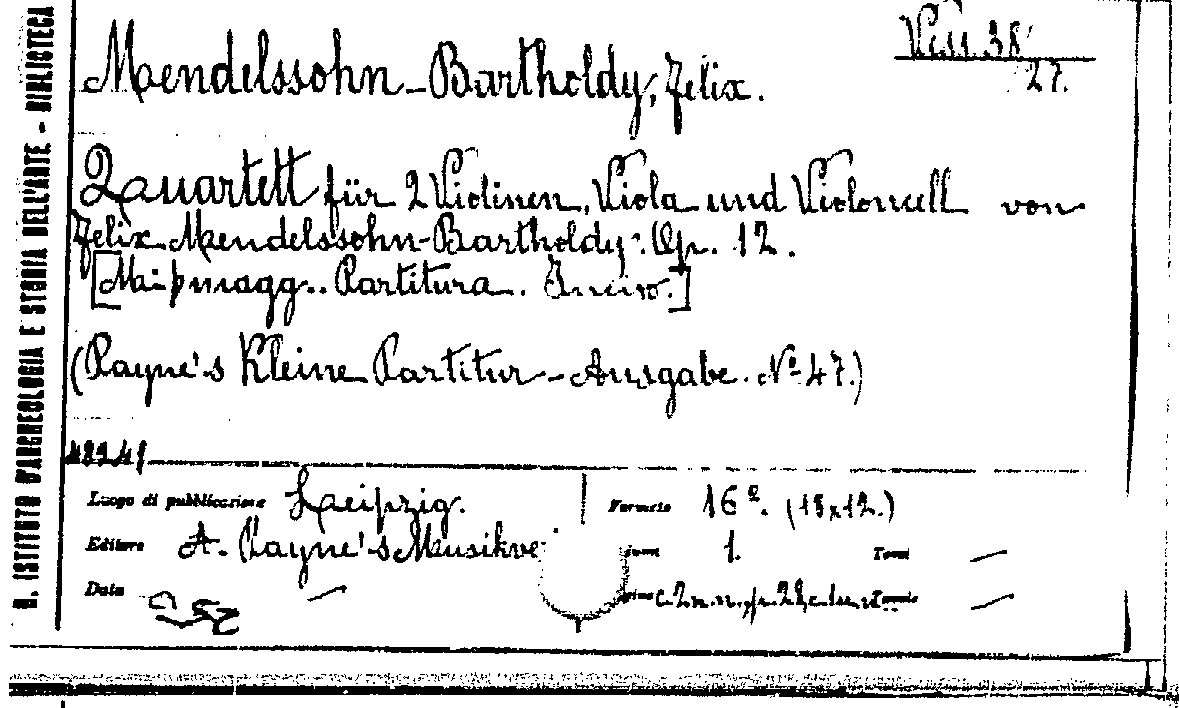 R. ISTITUTO D'ARCHEOLOGIA E STORIA DELL'ARTE - BIBLIOTECA
Vess. 38
27.
Mendelssohn-Bartholdy, Felix.
Quartett für 2 Violinen, Viola und Violoncell von
Felix Mendelssohn-Bartholdy. Op. 12.
[Mi♭ magg. Partitura. Inciso.]
(Payne's Kleine Partitur-Ausgabe. Nº 47.)
48241
Luogo di pubblicazione Leipzig. Formato 16º. (18x12.)
Editore A. Payne's Musikve 1. Tomi —
Data — c. 2 n. n., p. 28, Tavole —